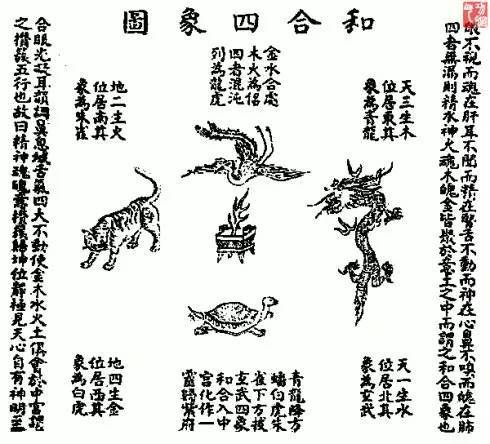 和合四象圖
眼不視而魂在肝耳不聞而精在腎舌不動而神在心鼻不嗅而魄在肺
四者無漏則精水神火魂木魄金皆聚於意土之中而謂之和合四象也
天三生木
位居東其
象為青龍
金水合處
木火為侶
四者混沌
列為龍虎
地二生火
位居南其
象為朱雀
天一生水
位居北其
象為玄武
青龍降方
蟠白虎朱
雀下方接
玄武四象
和合入中
宮化作一
靈歸紫府
地四生金
位居西其
象為白虎
合眼光凝耳韻調鼻息緘舌氣四大不動使金木水火土俱會於中宮謂
之攢簇五行也故曰精神魂魄意攢簇歸坤位靜極見天心自有神明至